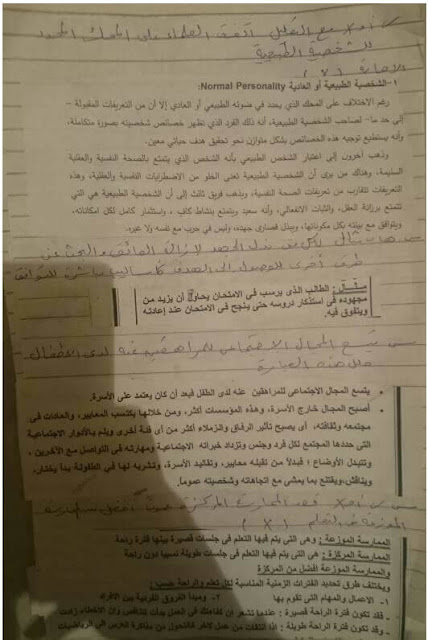 س أ/ × مع التعليل اتفق العلماء على المحك المحدد
للشخصية الطبيعية
الاجابة ( × )
١-الشخصية الطبيعية أو العادية Normal Personality:
رغم الاختلاف على المحك الذي يحدد في ضوئه الطبيعي أو العادي إلا أن من التعريفات المقبولة –
إلى حد ما– لصاحب الشخصية الطبيعية، أنه ذلك الفرد الذي تظهر خصائص شخصيته بصورة متكاملة،
وأنه يستطيع توجيه هذه الخصائص بشكل متوازن نحو تحقيق هدف حياتي معين.
وذهب آخرون إلى اعتبار الشخص الطبيعي بأنه الشخص الذي يتمتع بالصحة النفسية والعقلية
السليمة، وهناك من يرى أن الشخصية الطبيعية تعني الخلو من الاضطرابات النفسية والعقلية، وهذه
التعريفات تتقارب من تعريفات الصحة النفسية، ويذهب فريق ثالث إلى أن الشخصية الطبيعية هي التي
تتمتع برزانة العقل، والثبات الانفعالي، وأنه سعيد ويتمتع بنشاط كاف، واستثمار كامل لكل امكاناته،
ويتوافق مع بيئته بكل مكوناتها، ويبذل قصارى جهده، وليس في حرب مع نفسه ولا غيره.
س هات مثال لكل من بذل الجهد لإزالة العائق والبحث عن
طرق أخرى للوصول إلى الهدف كأساليب مباشرة للتوافق
مثــال: الطالب الذى يرسب فى الامتحان يحاول أن يزيد من
مجهوده فى استذكار دروسه حتى ينجح فى الامتحان عند إعادته
ويتفوق فيه.
س يتسع المجال الاجتماعي للمراهقين عنه لدى الأطفال
حلل هذه العبارة
يتسع المجال الاجتماعى للمراهقين عنه لدى الطفل فبعد أن كان يعتمد على الأسرة.
أصبح المجال خارج الأسرة، وهذه المؤسسات أكثر، ومن خلالها يكتسب المعايير، والعادات فى
مجتمعه وثقافته، أى يصبح تأثير الرفاق والزملاء أكثر من أى فئة أخرى ويلم بالأدوار الاجتماعية
التى حددها المجتمع لكل فرد وجنس وتزداد خبراته الاجتماعية ومهارته فى التواصل مع الآخرين،
وتتبدل الأوضاع؛ فبدلاً من تقبله معايير، وتقاليد الأسرة، وتشربه لها فى الطفولة بدأ يختار،
ويناقش، ويقتنع بما يمشى مع اتجاهاته وشخصيته عموماً.
س أ/ × تعد الممارسة المركزة
الموزعة فى التعلم ( × )
الممارسة الموزعة: وهى التى يتم فيها التعلم فى جلسات قصيرة بينها فترة راحة
الممارسة المركزة: هى التى يتم فيها التعلم فى جلسات طويلة نسبيا دون راحة
والممارسة الموزعة افضل من المركزة
ويختلف طرق تحديد الفترات الزمنية المناسبة لكل تعلم والراحة حسب:
١- الاعمال والمهام التى تقوم بها ٢- ومبدأ الفروق الفردية بين الأفراد
- قد تكون فترة الراحة قصيرة: عندما تشعر ان كفاءتك فى العمل بدأت تتناقص وان الاخطاء زادت
- وقد تكون فترة الراحة طويلة: اذا انتقلت من عمل لآخر